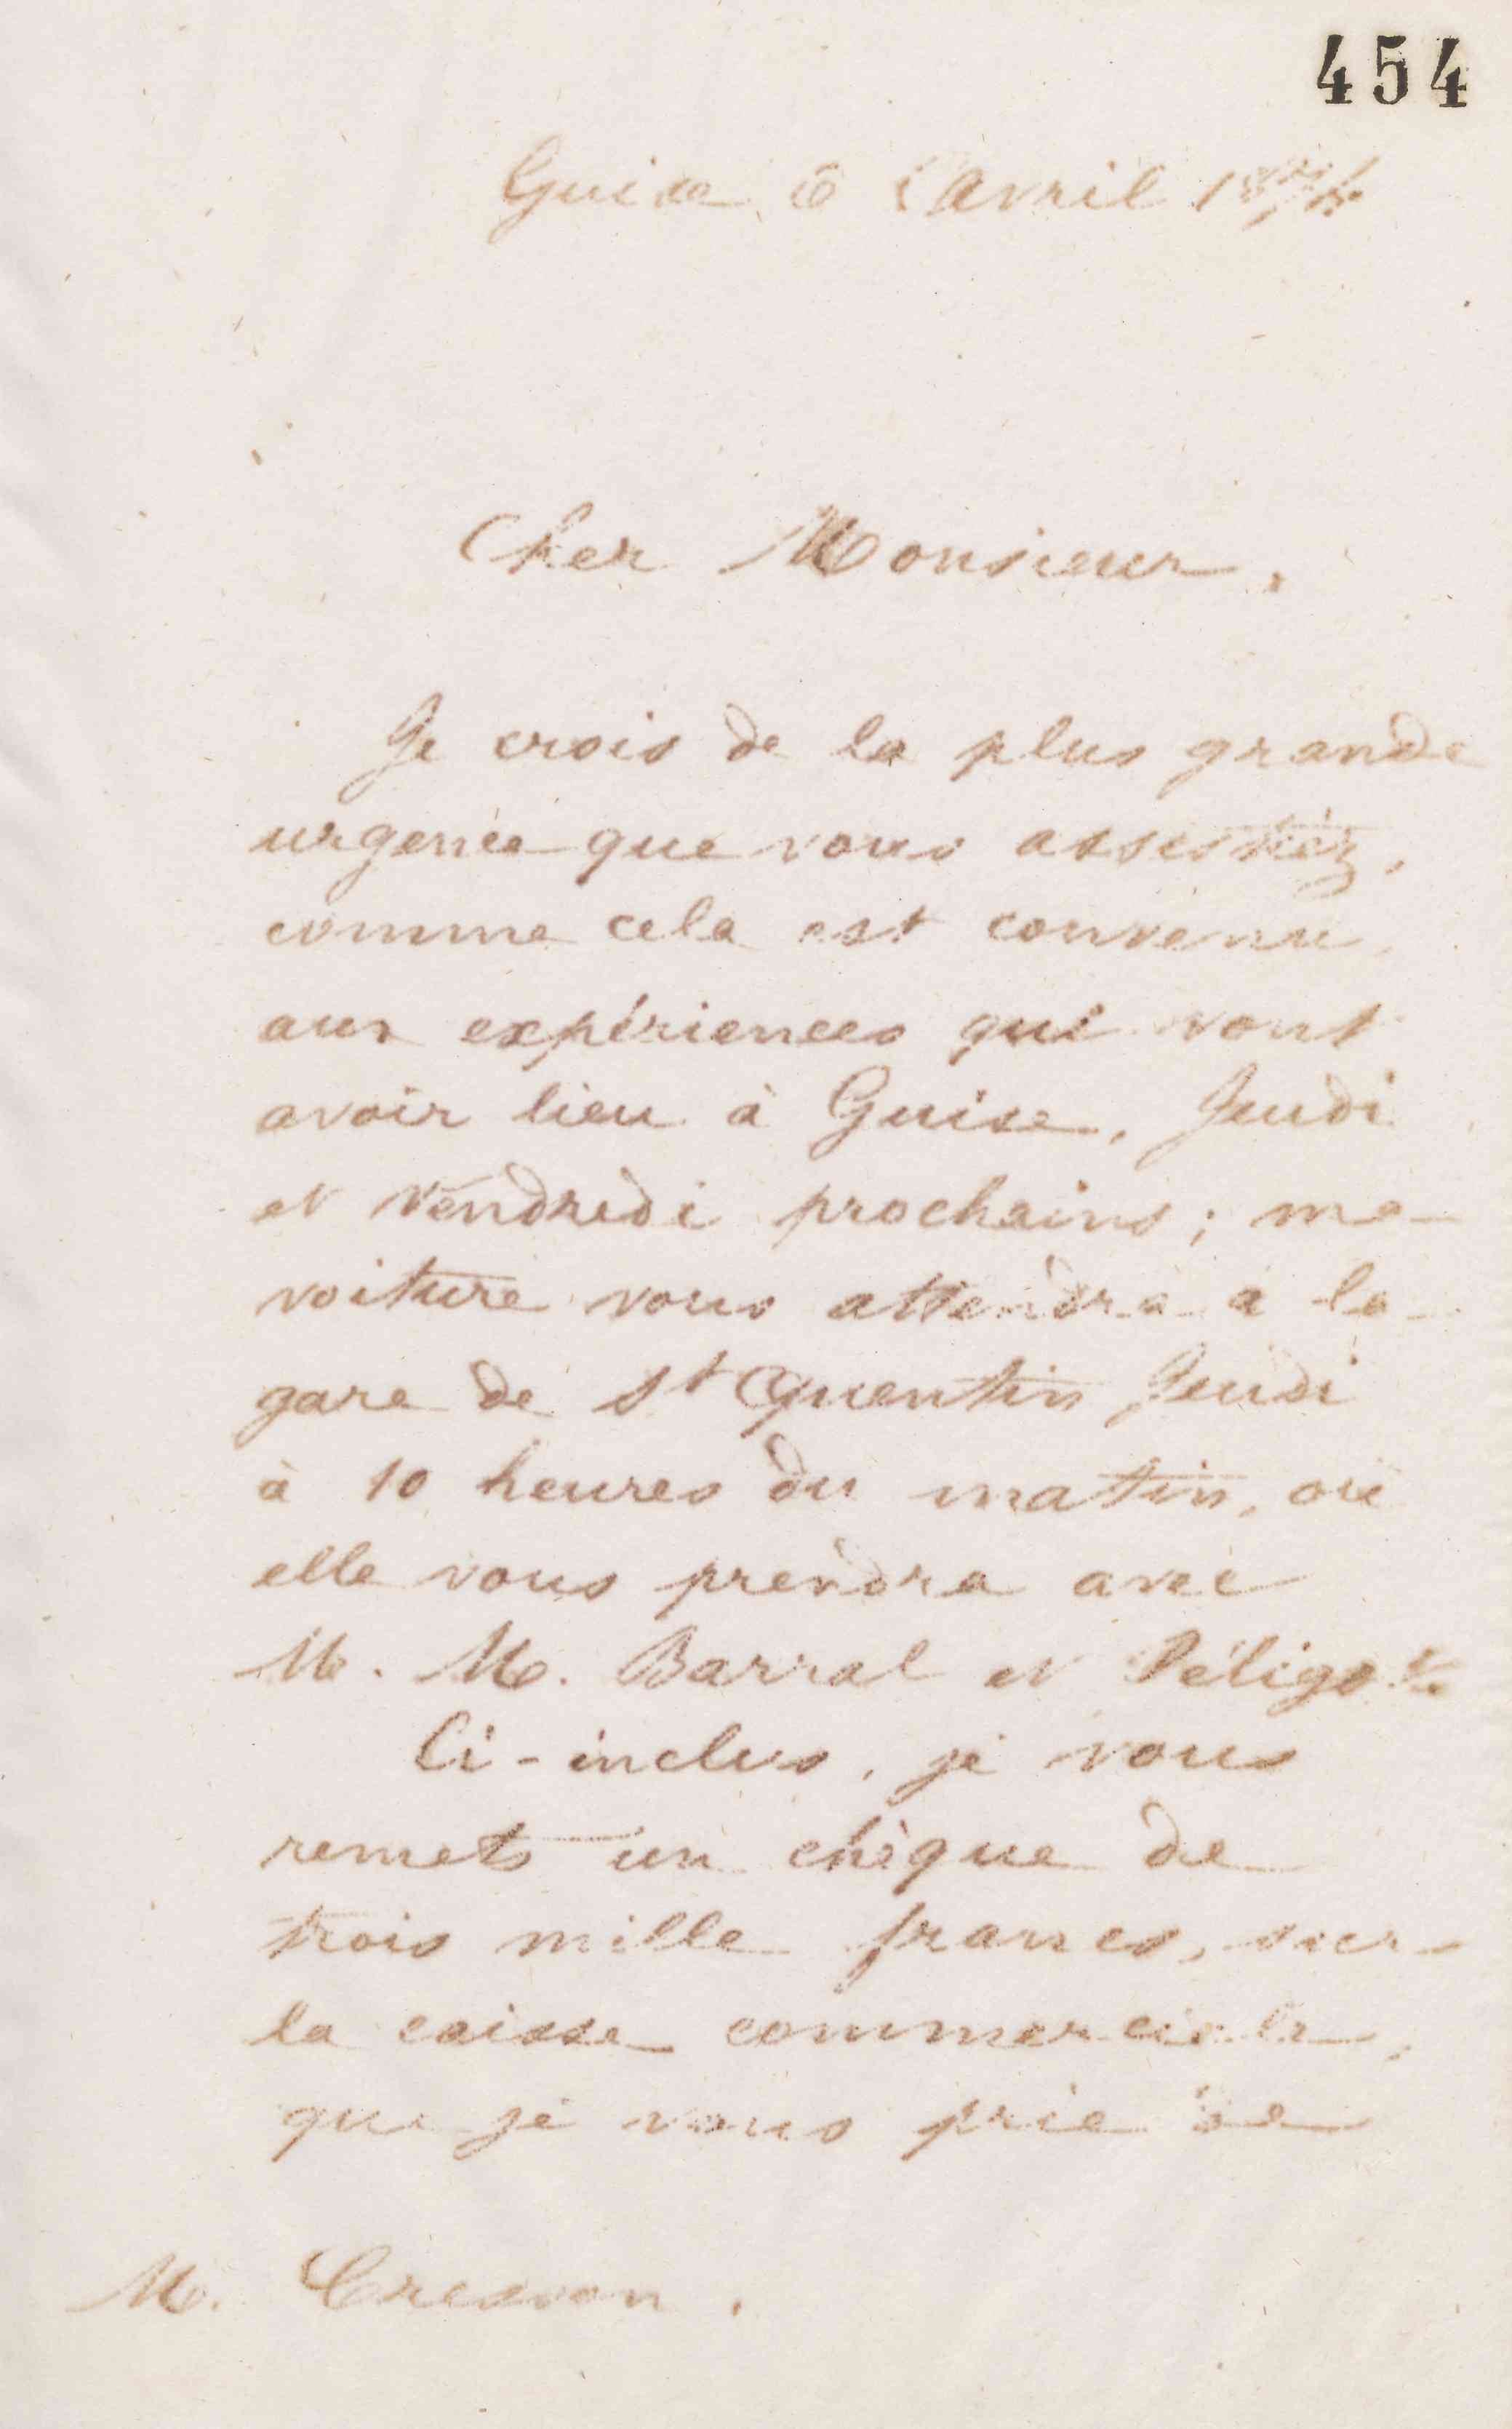 454
Guise 6 avril
Cher Monsieur,
Je crois de la plus grande
urgence que vous assistiez,
comme cela est convenu,
aux expériences qui vont
avoir lieu à Guise, Jeudi
et Vendredi prochains ; ma
voiture vous attendra à la
gare de St Quentin Jeudi
à 10 heures du matin, où
elle vous prendra avec
M. M. Barral et Péligot.
Ci-inclus, je vous
remets un chèque de
trois mille francs, sur
la caisse commerciale,
que je vous prie de
M. Cresson.